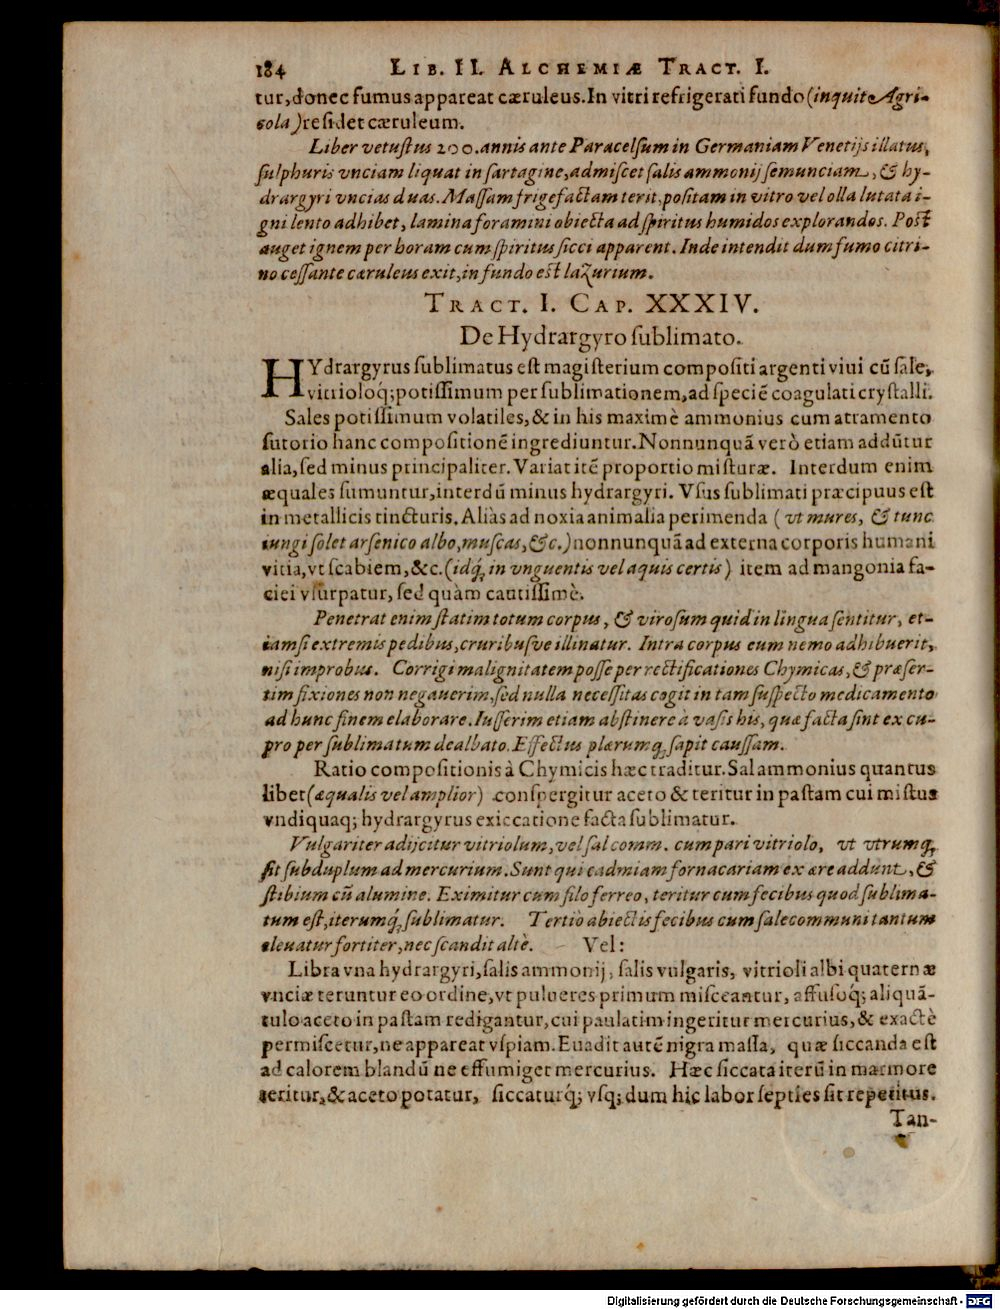 184 LIB. II. ALCHEMIÆ TRACT. I.
tur, donec fumus appareat cæruleus. In vitri refrigerati fundo (inquit Agri-
cola) residet cæruleum.
Liber vetuſtus 200. annis ante Paracelſum in Germaniam Venetijs illatus,
ſulphuris vnciam liquat in ſartagine, admiſcet ſalis ammonij ſemunciam, & hy-
drargyri vncias duas. Maſſam frigefactam terit, poſitam in vitro vel olla lutata i-
gni lento adhibet, lamina foramini obiecta ad ſpiritus humidos explorandos. Poſt
auget ignem per horam cum ſpiritus ſicci apparent. Inde intendit dum fumo citri-
no ceſſante cæruleus exit, in fundo eſt lazurium.
TRACT. I. CAP. XXXIV.
De Hydrargyro ſublimato.
HYdrargyrus ſublimatus eſt magiſterium compoſiti argenti viui cũ ſale,
vitrioloq́; potiſſimum per ſublimationem, ad ſpeciẽ coagulati cryſtalli.
Sales potiſſimum volatiles, & in his maximè ammonius cum atramento
ſutorio hanc compoſitionẽ ingrediuntur. Nonnunquã verò etiam addũtur
alia, ſed minus principaliter. Variat itẽ proportio miſturæ. Interdum enim
æquales ſumuntur, interdũ minus hydrargyri. Vſus ſublimati præcipuus eſt
in metallicis tincturis. Aliàs ad noxia animalia perimenda (vt mures, & tunc
iungi ſolet arſenico albo, muſcas, &c.) nonnunquã ad externa corporis humani
vitia, vt ſcabiem, &c. (idq́; in vnguentis vel aquis certis) item ad mangonia fa-
ciei vſurpatur, ſed quàm cautiſſimè.
Penetrat enim ſtatim totum corpus, & viroſum quid in lingua ſentitur, et-
iamſi extremis pedibus, cruribuſve illinatur. Intra corpus eum nemo adhibuerit,
niſi improbus. Corrigi malignitatem poſſe per rectificationes Chymicas, & præſer-
tim fixiones non negauerim, ſed nulla neceſſitas cogit in tam ſuſpecto medicamento
ad hunc finem elaborare. Iuſſerim etiam abſtinere à vaſis his, quæ facta ſint ex cu-
pro per ſublimatum dealbato. Effectus plærumq; ſapit cauſſam.
Ratio compoſitionis à Chymicis hæc traditur. Sal ammonius quantus
libet (æqualis vel amplior) conſpergitur aceto & teritur in paſtam cui miſtus
vndiquaq; hydrargyrus exiccatione facta ſublimatur.
Vulgariter adijcitur vitriolum, vel ſal comm. cum pari vitriolo, vt vtrumq;
ſit ſubduplum ad mercurium. Sunt qui cadmiam fornacariam ex ære addunt, &
ſtibium cũ alumine. Eximitur cum filo ferreo, teritur cum fecibus quod ſublima-
tum eſt, iterumq́; ſublimatur. Tertiò abiectis fecibus cum ſale communi tantum
eleuatur fortiter, nec ſcandit altè. Vel:
Libra vna hydrargyri, ſalis ammonij, ſalis vulgaris, vitrioli albi quaternæ
vnciæ teruntur eo ordine, vt pulueres primum miſceantur, affuſoq́; aliquã-
tulo aceto in paſtam redigantur, cui paulatim ingeritur mercurius, & exactè
permiſcetur, ne appareat vſpiam. Euadit autẽ nigra maſſa, quæ ſiccanda eſt
ad calorem blandũ ne effumiget mercurius. Hæc ſiccata iterũ in marmore
teritur, & aceto potatur, ſiccaturq́; vſq; dum hic labor ſepties ſit repetitus.
Tan-
Digitalisierung gefördert durch die Deutsche Forschungsgemeinschaft - DFG